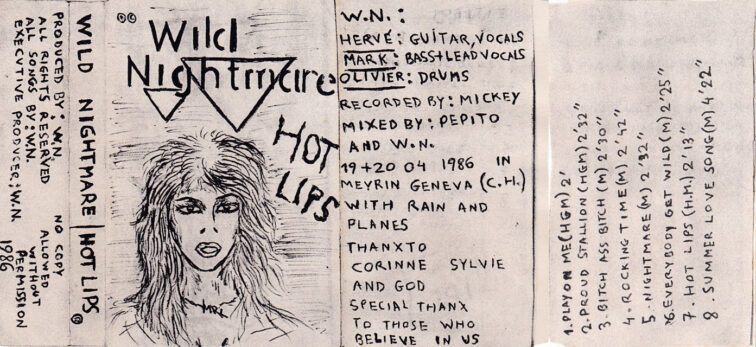 PRODUCED BY: W.N
ALL RIGHTS RESERVED
ALL SONGS BY: W.N.
EXECUTIVE PRODUCER; W.N.
NO COPY
ALLOWED
WITHOUT
PERMISSION
1986
WILD NIGHTMARE | HOT LIPS
Wild
Nightmare
HOT
LIPS
W.N.:
HERVÉ: GUITAR, VOCALS
MARK: BASS+LEAD VOCALS
OLIVIER: DRUMS
RECORDED BY: MICKEY
MIXED BY: PEPITO
AND W.N.
19+20 04 1986 IN
MEYRIN GENEVA (C.H.)
WITH RAIN AND
PLANES
THANXTO
CORINNE SYLVIE
AND GOD
SPECIAL THANX
TO THOSE WHO
BELIEVE IN US
1. PLAY ON ME (HGM) 2'
2. PROUD STALLION (HGM) 2'32"
3. BITCH ASS BITCH (M) 2'30"
4. ROCKING TIME (M) 2'42"
5. NIGHTMARE (M) 2'32"
6. EVERYBODY GET WILD (M) 2'25"
7. HOT LIPS (H.M.) 2'13"
8 SUMMER LOVE SONG (M) 4'22"